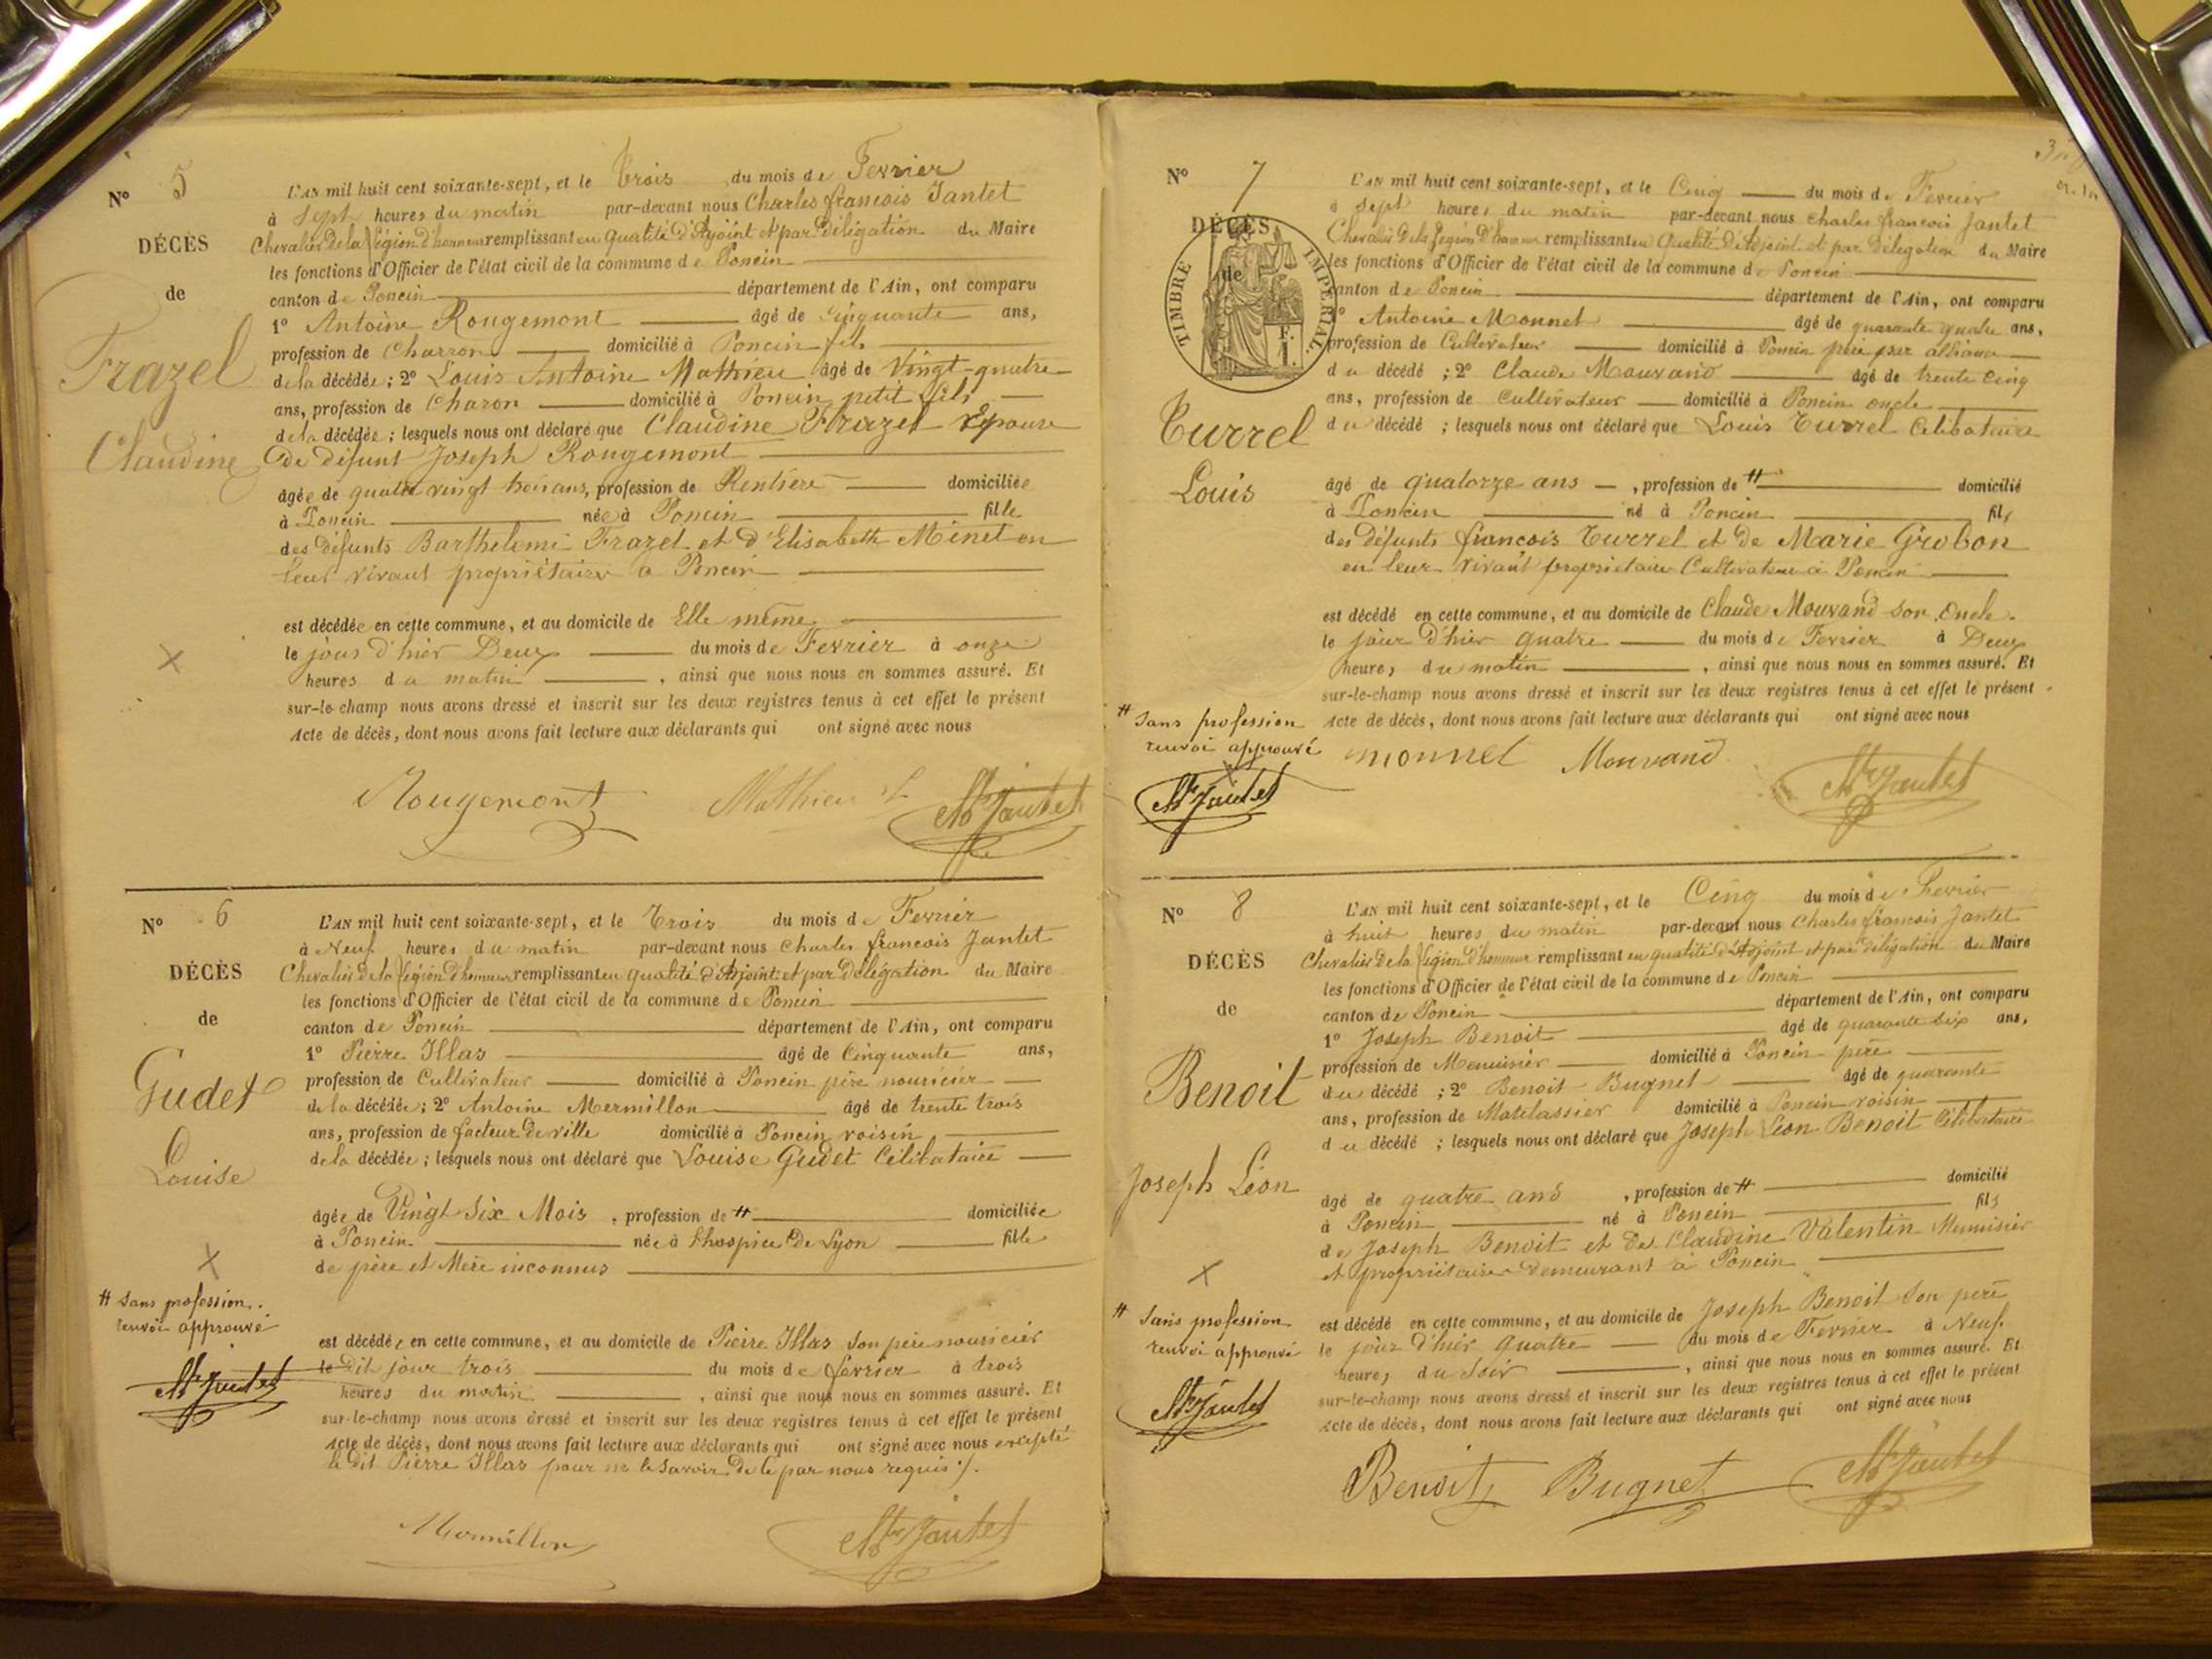 N° 5
DÉCÈS
de
Frazel
Claudine
L'AN mil huit cent soixante-sept, et le Trois du mois de Fevrier
à sept heures du matin par-devant nous Charles francois Jantet
Chevalier de la légion d'honneur remplissant en qualité d'Adjoint et par Délégation du Maire
les fonctions d'Officier de l'état civil de la commune de Poncin
canton de Poncin département de l'Ain, ont comparu
1° Antoine Rougemont âgé de Cinquante ans,
profession de Charron domicilié à Poncin fils
de la décédée ; 2° Louis Antoine Mathieu âgé de Vingt-quatre
ans, profession de Charon domicilié à Poncin petit fils
de la décédée ; lesquels nous ont déclaré que Claudine Frazel Epouse
de défunt Joseph Rougemont
âgée de quatre vingt trois ans, profession de Rentière domiciliée
à Poncin née à Poncin fille
des défunts Barthelemi Frazel et d'Elisabeth Minet en
leur vivant propriétaire a Poncin
est décédée en cette commune, et au domicile de Elle même
le jour d'hier Deux du mois de Fevrier à onze
heures du matin , ainsi que nous nous en sommes assuré. Et
sur-le-champ nous avons dressé et inscrit sur les deux registres tenus à cet effet le présent
Acte de décès, dont nous avons fait lecture aux déclarants qui ont signé avec nous
Rougemont Mathieu L Jantet
N° 6
DÉCÈS
de
Gudet
Louise
# Sans profession
renvoi approuvé
Jantet
L'AN mil huit cent soixante-sept, et le Trois du mois de Fevrier
à Neuf heures du matin par-devant nous Charles francois Jantet
Chevalier de la légion d'honneur remplissant en qualité d'Adjoint et par Délégation du Maire
les fonctions d'Officier de l'état civil de la commune de Poncin
canton de Poncin département de l'Ain, ont comparu
1° Pierre Illas âgé de Cinquante ans,
profession de Cultivateur domicilié à Poncin père nouricier
de la décédée ; 2° Antoine Mermillon âgé de trente trois
ans, profession de facteur de ville domicilié à Poncin voisin
de la décédée ; lesquels nous ont déclaré que Louise Gudet Célibataire
âgée de Vingt Six Mois , profession de # domiciliée
à Poncin née à l'hospice de Lyon fille
de père et Mère inconnus
est décédée en cette commune, et au domicile de Pierre Illas Son père nouricier
le Dit jour trois du mois de fevrier à trois
heures du matin , ainsi que nous nous en sommes assuré. Et
sur-le-champ nous avons dressé et inscrit sur les deux registres tenus à cet effet le présent
Acte de décès, dont nous avons fait lecture aux déclarants qui ont signé avec nous excepté
le dit Pierre Illas pour ne le savoir De ce par nous requis ./.
Mermillon Jantet
N° 7
DÉCÈS
de
TIMBRE IMPÉRIAL
Turrel
Louis
# Sans profession
renvoi approuvé
Jantet
L'AN mil huit cent soixante-sept, et le Cinq du mois de Fevrier
à Sept heures du matin par-devant nous Charles francois Jantet
Chevalier de la Legion d'honneur remplissant en Qualité d'Adjoint et par Délegation du Maire
les fonctions d'Officier de l'état civil de la commune de Poncin
canton de Poncin département de l'Ain, ont comparu
1° Antoine Monnet âgé de quarante quatre ans,
profession de Cultivateur domicilié à Poncin père par alliance
du décédé ; 2° Claude Mouvand âgé de trente Cinq
ans, profession de Cultivateur domicilié à Poncin oncle
du décédé ; lesquels nous ont déclaré que Louis Turrel Célibataire
âgé de quatorze ans , profession de # domicilié
à Poncin né à Poncin fils
des défunts francois Turrel et de Marie Grobon
en leur vivant propriétaire Cultivateur à Poncin
est décédé en cette commune, et au domicile de Claude Mouvand son Oncle
le jour d'hier quatre du mois de Fevrier à Deux
heures du matin , ainsi que nous nous en sommes assuré. Et
sur-le-champ nous avons dressé et inscrit sur les deux registres tenus à cet effet le présent
Acte de décès, dont nous avons fait lecture aux déclarants qui ont signé avec nous
monnet Mouvand Jantet
N° 8
DÉCÈS
de
Benoit
Joseph Léon
# Sans profession
renvoi approuvé
Jantet
L'AN mil huit cent soixante-sept, et le Cinq du mois de Fevrier
à huit heures du matin par-devant nous Charles francois Jantet
Chevalier de la légion d'honneur remplissant en qualité d'Adjoint et par délégation du Maire
les fonctions d'Officier de l'état civil de la commune de Poncin
canton de Poncin département de l'Ain, ont comparu
1° Joseph Benoit âgé de quarante Six ans,
profession de Menuisier domicilié à Poncin père
du décédé ; 2° Benoit Bugnet âgé de quarante
ans, profession de Matelassier domicilié à Poncin voisin
du décédé ; lesquels nous ont déclaré que Joseph Léon Benoit Célibataire
âgé de quatre ans , profession de # domicilié
à Poncin né à Poncin fils
de Joseph Benoit et de Claudine Valentin Menuisier
et propriétaire demeurant à Poncin
est décédé en cette commune, et au domicile de Joseph Benoit Son père
le jour d'hier Quatre du mois de Fevrier à Neuf
heures du Soir , ainsi que nous nous en sommes assuré. Et
sur-le-champ nous avons dressé et inscrit sur les deux registres tenus à cet effet le présent
Acte de décès, dont nous avons fait lecture aux déclarants qui ont signé avec nous
Benoit Bugnet Jantet